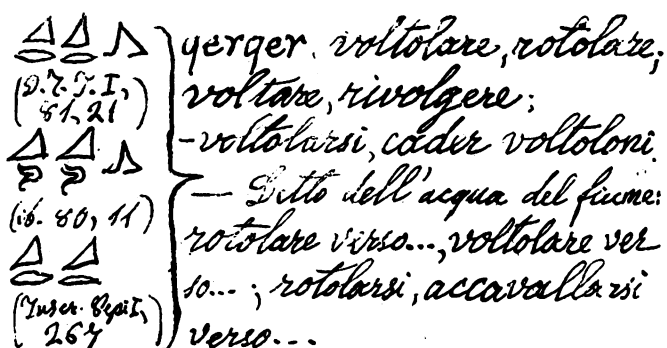 𓈎𓂋𓈎𓂋𓂻
(D.T.T.I,
81, 21)
(ib. 80, 11)
𓈎𓂋𓈎𓂋
(Inscr. I,
267)
qerqer. voltolare, rotolare;
voltare, rivolgere;
-voltolarsi, cader voltoloni.
— Detto dell'acqua del fiume:
rotolare verso..., voltolare ver
so... ; rotolarsi, accavallarsi
verso...